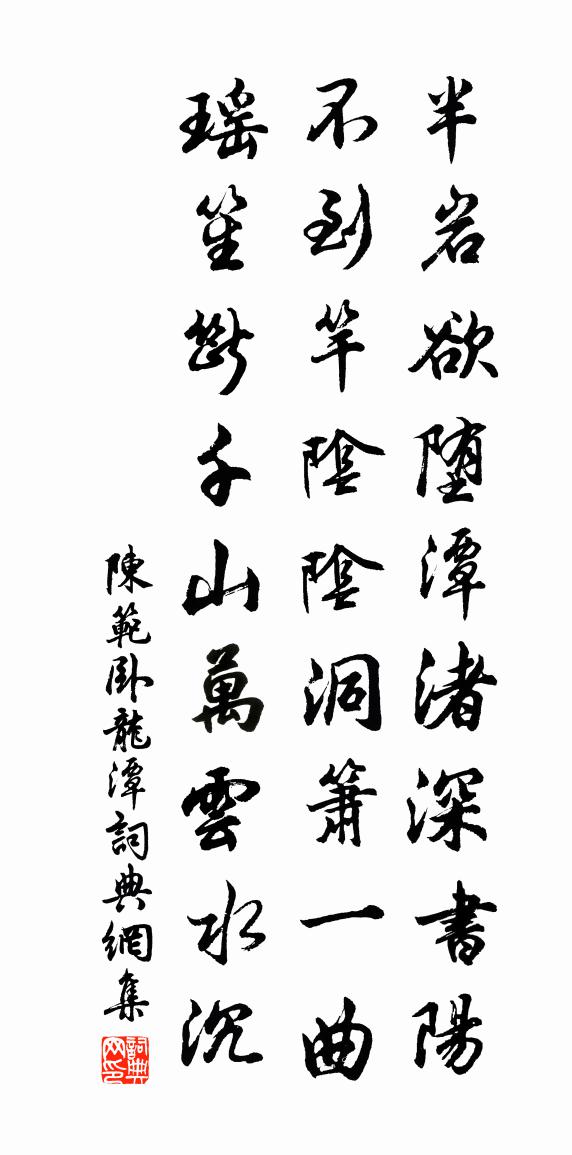 半岩欲堕潭渚深書陽
不到竿陰陰洞簫一曲
瑶笙斷千山萬雲水沉
陳範卧龍潭詞典網集
詞典网印